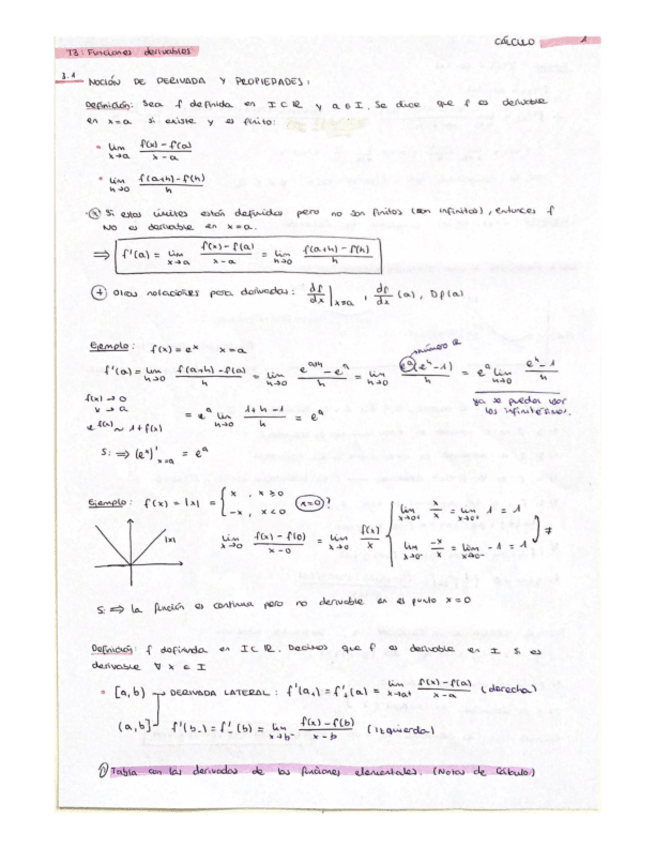 CÁLCULO 1
T3: Funciones derivables
3.1 NOCIÓN DE DERIVADA Y PROPIEDADES:
Definición: Sea f definida en I ⊂ ℝ y a ∈ I. Se dice que f es derivable
en x=a si existe y es finito:
• lim x→a (f(x) - f(a))/(x - a)
• lim h→0 (f(a+h) - f(h))/h
Si estos límites están definidos pero no son finitos (son infinitos), entonces f
NO es derivable en x=a.
⇒ f'(a) = lim x→a (f(x) - f(a))/(x - a) = lim h→0 (f(a+h) - f(h))/h
Otras notaciones para derivadas: df/dx |x=a , df/dx (a), Df(a)
número ℝ
Ejemplo: f(x) = eˣ x=a
f'(a) = lim h→0 (f(a+h) - f(a))/h = lim h→0 (eᵃ⁺ʰ - eᵃ)/h = lim h→0 eᵃ(eʰ - 1)/h = eᵃ lim h→0 (eʰ - 1)/h
f(x) → 0
x → a
e^f(x) ~ 1 + f(x)
= eᵃ lim h→0 (1+h-1)/h = eᵃ
ya se pueden usar
los infinitésimos.
S: ⇒ (eˣ)' x=a = eᵃ
Ejemplo: f(x) = |x| = { x , x ≥ 0
-x , x < 0
x=0 ?
|x|
lim x→0 (f(x) - f(0))/(x - 0) = lim x→0 f(x)/x
lim x→0+ x/x = lim x→0+ 1 = 1
lim x→0- -x/x = lim x→0- -1 = 1
≠
S: ⇒ la función es continua pero no derivable en el punto x=0
Definición: f definida en I ⊂ ℝ. Decimos que f es derivable en I si es
derivable ∀ x ∈ I
• [a, b) → DERIVADA LATERAL: f'(a+) = f'+(a) = lim x→a+ (f(x) - f(a))/(x - a) (derecha)
(a, b] f'(b-) = f'-(b) = lim x→b- (f(x) - f(b))/(x - b) (izquierda)
Tabla con las derivadas de las funciones elementales. (Notas de Cálculo)